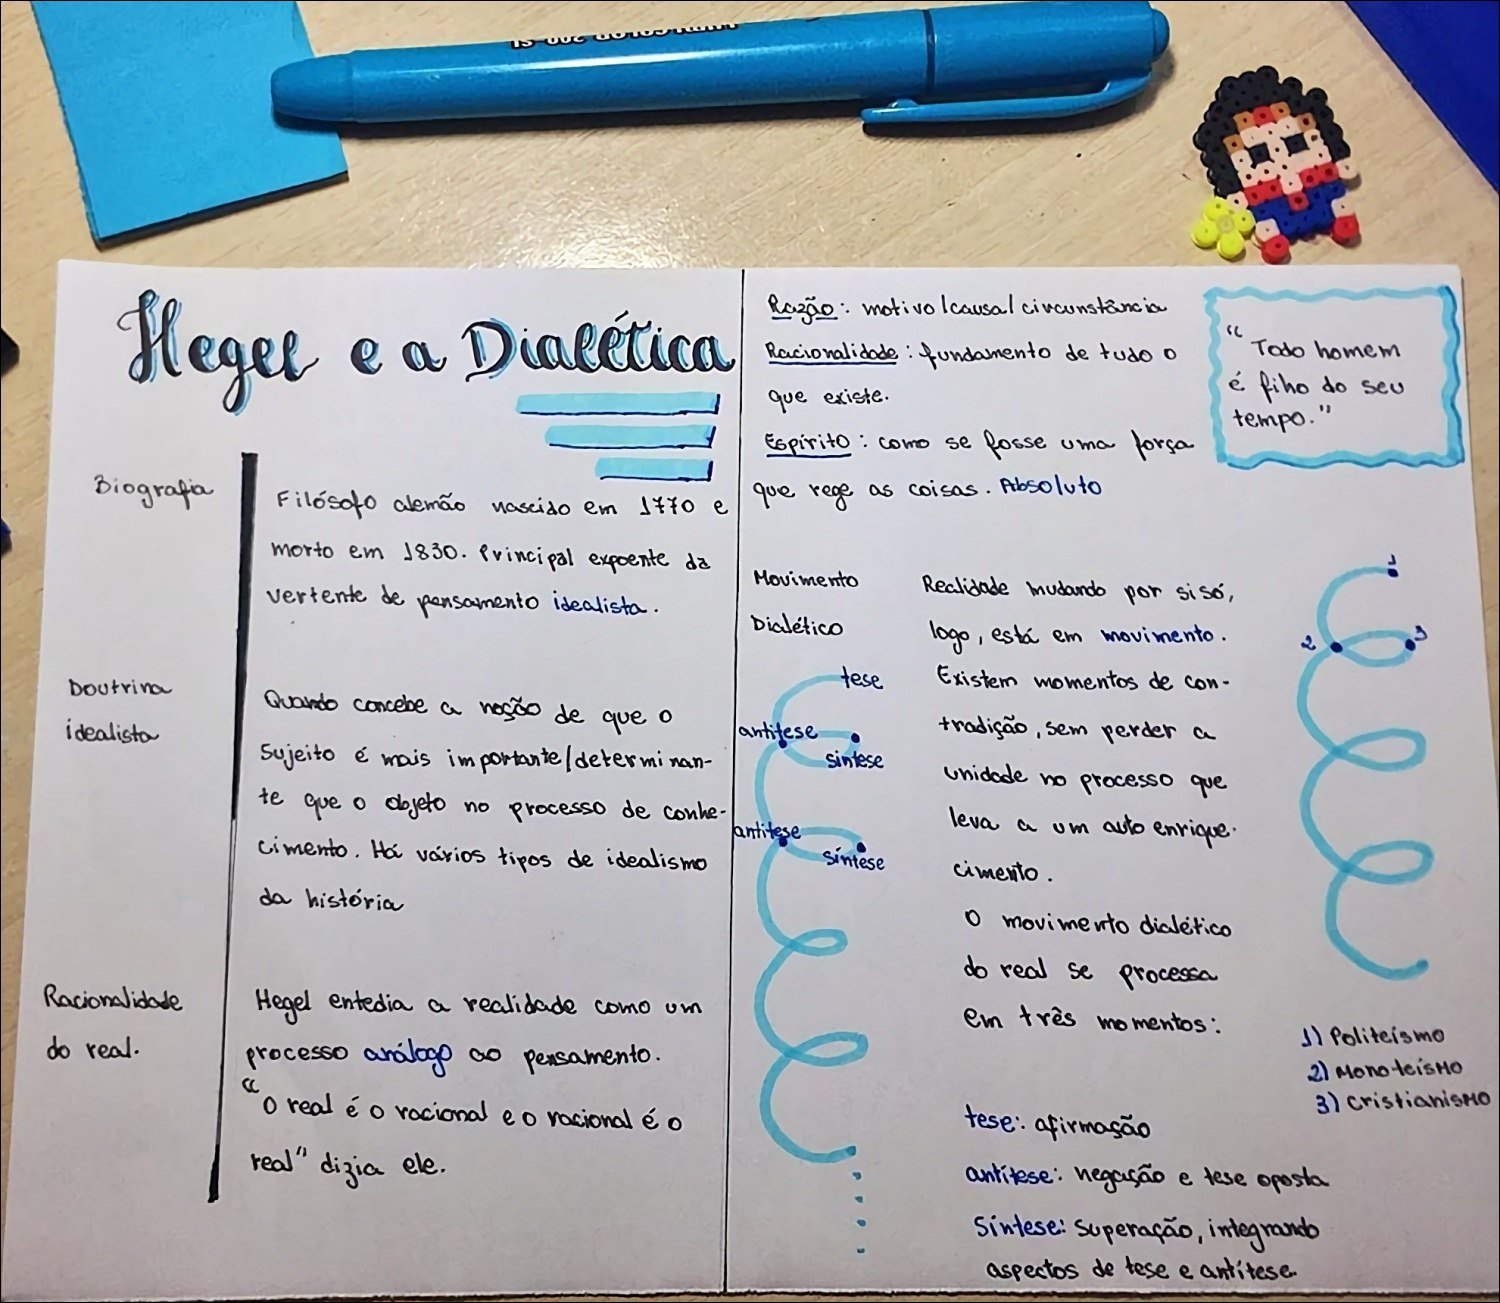 Hegel e a Dialética
Biografia
Filósofo alemão nascido em 1770 e
morto em 1830. Principal expoente da
vertente de pensamento idealista.
Doutrina
idealista
Quando concebe a noção de que o
sujeito é mais importante/determinan-
te que o objeto no processo de conhe-
cimento. Há vários tipos de idealismo
da história
Racionalidade
do real.
Hegel entedia a realidade como um
processo análogo ao pensamento.
"O real é o racional e o racional é o
real" dizia ele.
Razão: motivo/causa/circunstância
Racionalidade: fundamento de tudo o
que existe.
Espírito: como se fosse uma força
que rege as coisas. Absoluto
"Todo homem
é filho do seu
tempo."
Movimento
Dialético
tese
antítese
síntese
antítese
síntese
Realidade mudando por si só,
logo, está em movimento.
Existem momentos de con-
tradição, sem perder a
unidade no processo que
leva a um auto enrique-
cimento.
O movimento dialético
do real se processa
em três momentos:
tese: afirmação
antítese: negação e tese oposta
Síntese: superação, integrando
aspectos de tese e antítese.
1
2
3
1) Politeísmo
2) Monoteísmo
3) Cristianismo